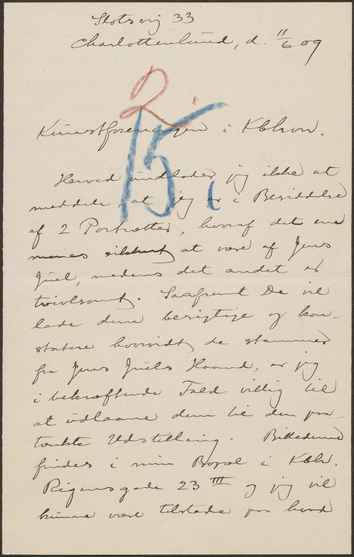 Slotsvej 33
Charlottenlund, d. 11/6 09
2.
15
Kunstforeningen i Kbhvn.
Herved undlader jeg ikke at
meddele, at jeg er i Besiddelse
af 2 Portrætter, hvoraf det ene
menes sikkert at være af Jens
Juel, medens det andet er
tvivlsomt. Saafremt De vil
lade dem besigtige og kon-
statere hvorvidt de stammer
fra Jens Juels Haand, er jeg
i bekræftende Fald villig til
at udlaane dem til den paa-
tænkte Udstilling. Billederne
findes i min Bopæl i Kbh.
Rigensgade 23 III og jeg vil
kunne være tilstede paa hvad